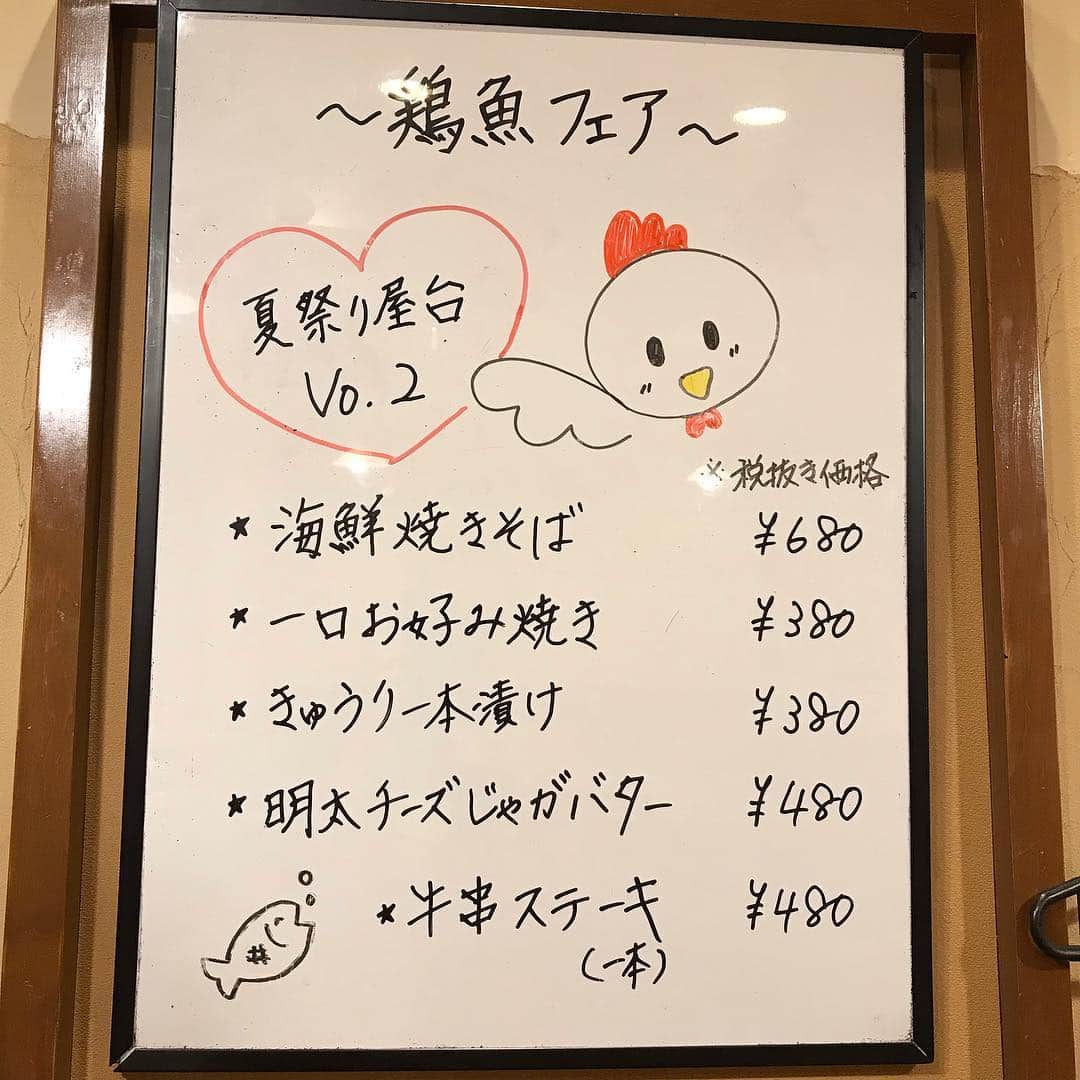 ～鶏魚フェア～
夏祭り屋台
Vo.2
※税抜き価格
★海鮮焼きそば ¥680
★一口お好み焼き ¥380
★きゅうり一本漬け ¥380
★明太チーズじゃがバター ¥480
★牛串ステーキ ¥480
(一本)